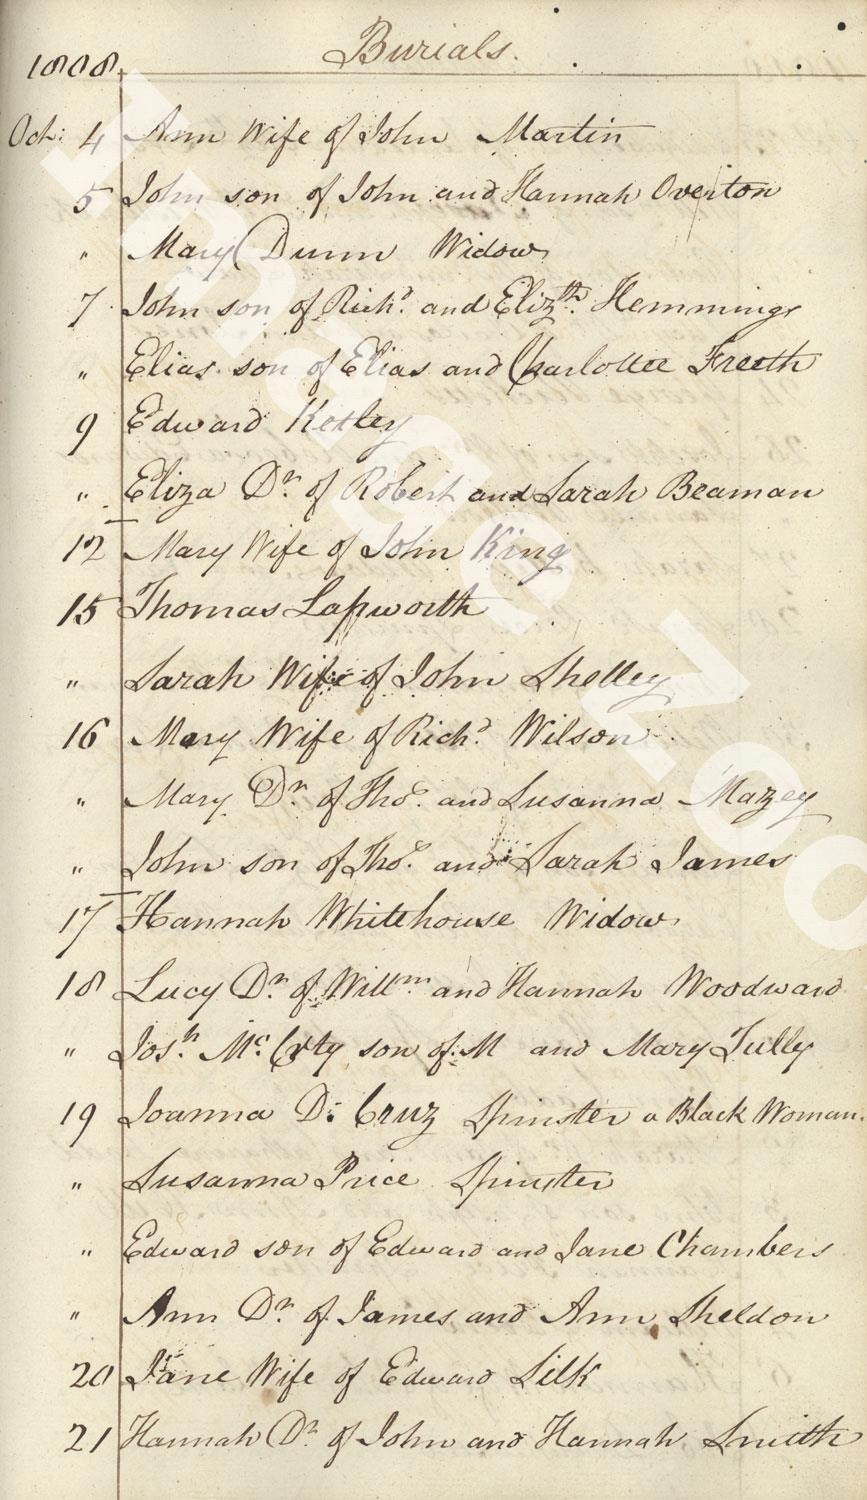 1808
Burials.
Oct: 4 Ann Wife of John Martin
5 John son of John and Hannah Overton
" Mary Dunn Widow
7 John son of Richd. and Elizth. Hemmings
" Elias son of Elias and Charlotte Freeth
9 Edward Ketley
" Eliza Dr. of Robert and Sarah Beaman
12 Mary Wife of John King
15 Thomas Lapworth
" Sarah Wife of John Shelley
16 Mary Wife of Richd. Wilson
" Mary Dr. of Thos. and Susanna Mazey
" John son of Thos. and Sarah James
17 Hannah Whitehouse Widow
18 Lucy Dr. of Willm. and Hannah Woodward
" Josh. Mc. son of M and Mary Tully
19 Joanna D: Cruz Spinster a Black Woman.
" Susanna Price Spinster
" Edward son of Edward and Jane Chambers
" Ann Dr. of James and Ann Sheldon
20 Jane Wife of Edward Silk
21 Hannah Dr. of John and Hannah Smith